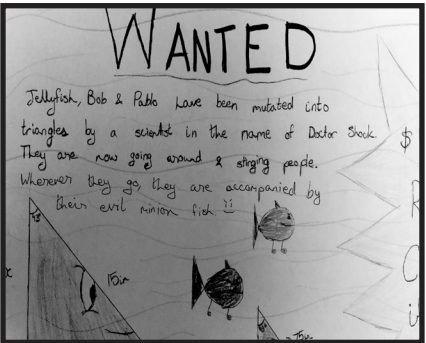 WANTED
Jellyfish, Bob & Pablo have been mutated into
triangles by a scientist in the name of Doctor Shock.
They are now going around & stinging people.
Wherever they go, they are accompanied by
their evil minion fish
15in